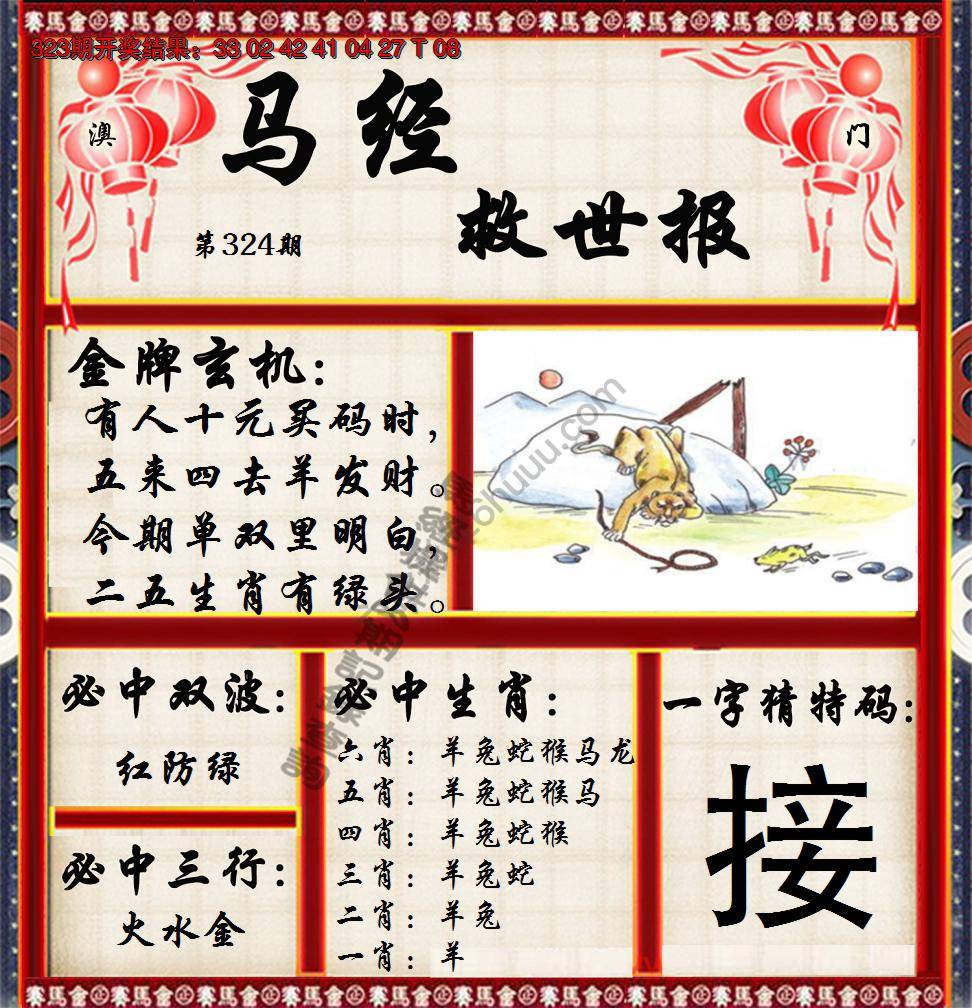 賽馬會 賽馬會 賽馬會 賽馬會 賽馬會 賽馬會 賽馬會 賽馬會
323期开奖结果：33 02 42 41 04 27 T 08
澳
门
马经
救世报
第324期
金牌玄机：
有人十元买码时，
五来四去羊发财。
今期单双里明白，
二五生肖有绿头。
必中双波：
红防绿
必中三行：
火水金
必中生肖：
六肖：羊兔蛇猴马龙
五肖：羊兔蛇猴马
四肖：羊兔蛇猴
三肖：羊兔蛇
二肖：羊兔
一肖：羊
一字猜特码：
接